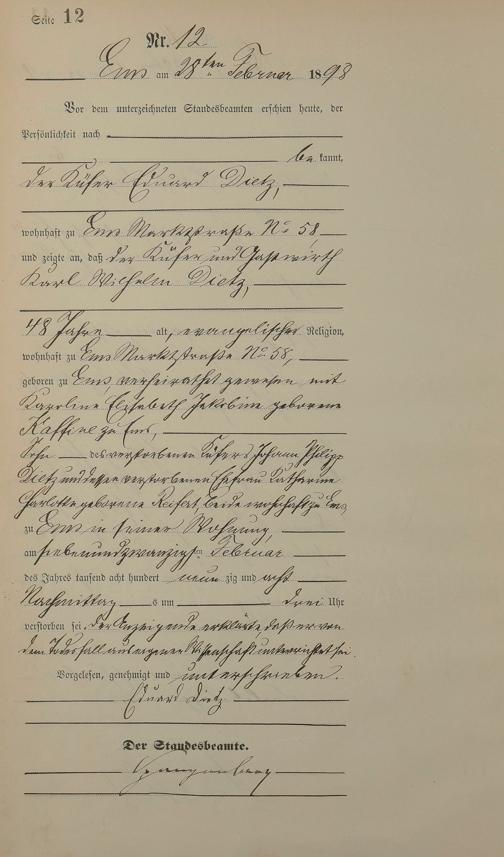 Seite 12
Nr. 12.
Ems am 28ten Februar 1898
Vor dem unterzeichneten Standesbeamten erschien heute, der
Persönlichkeit nach
be kannt,
der Küfer Eduard Dietz,
wohnhaft zu Ems Marktstraße No 58
und zeigte an, daß der Küfer und Gastwirth
Karl Wilhelm Dietz,
48 Jahre alt, evangelischer Religion,
wohnhaft zu Ems Marktstraße No 58,
geboren zu Ems, verheirathet gewesen mit
Karoline Elisabeth Jakobine geborene
zu Ems,
Sohn des verstorbenen Küfers Johann Philipp
Dietz und dessen verstorbenen Ehefrau Katharine
Charlotte geborene Reifert, beide wohnhaft zu Ems
zu Ems in seiner Wohnung,
am siebenundzwanzigsten Februar
des Jahres tausend acht hundert neun zig und acht
Nachmittag s um drei Uhr
verstorben sei. Der Anzeigende erklärte, daß er von
dem Todesfall aus eigener Wissenschaft unterrichtet sei.
Vorgelesen, genehmigt und unterschrieben.
Eduard Dietz
Der Standesbeamte.
Spangenberg